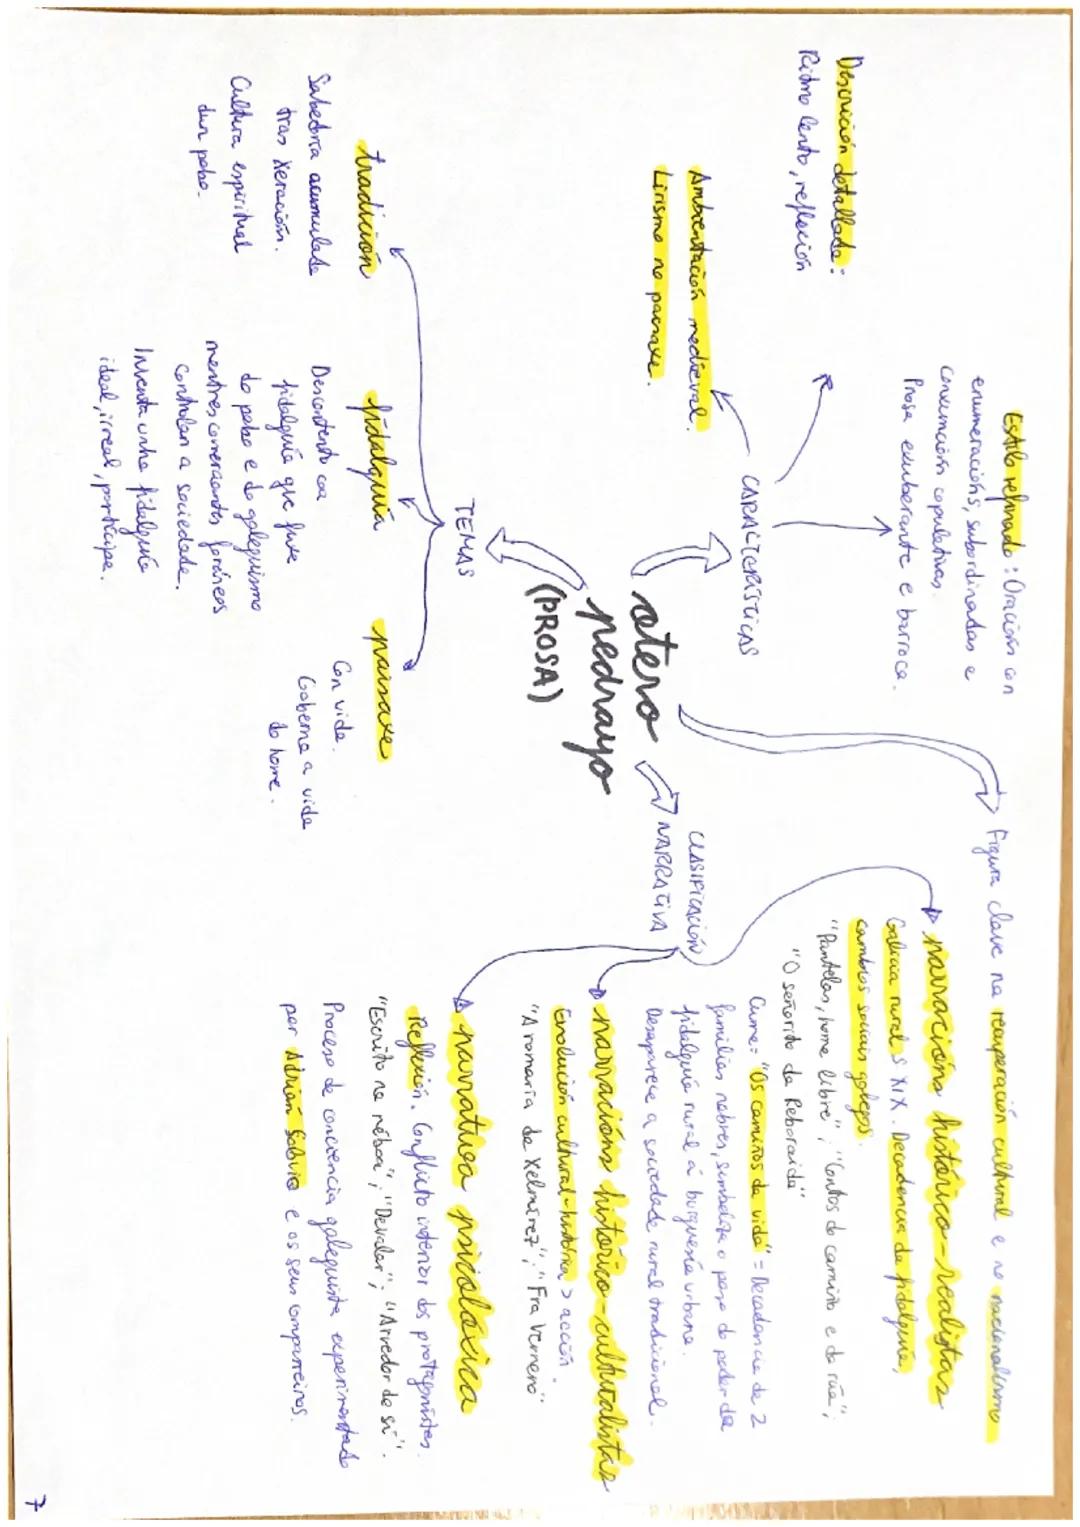 otero
pedrayo
(PROSA)
Figura clave na recuperación cultural e no nacionalismo
CARACTERÍSTICAS
Estilo refinado: Oracións con
enumeracións, subordinadas e
conxuncións copulativas.
Prosa exuberante e barroca.
Descrición detallada:
Ritmo lento, reflexión
Ambientación medieval.
Lirismo na paisaxe.
TEMAS
tradición
Sabedoría acumulada
tras xeración.
Cultura espiritual
dun pobo.
fidalguía
Descontento coa
fidalguía que fuxe
do pobo e do galeguismo
mentres comerciantes foráneos
controlan a sociedade.
Inventa unha fidalguía
ideal, irreal, partícipe.
paisaxe
Con vida.
Goberna a vida
do home.
CLASIFICACIÓN
NARRATIVA
narracións histórico-realistas
Galicia rural s XIX. Decadencia da fidalguía,
cambios sociais galegos.
"Pantelas, home libre"; "Contos do camiño e da rúa";
"O señorito da Reboraina"
Cume: "Os camiños da vida" = Decadencia de 2
familias nobres, simboliza o paso do poder da
fidalguía rural á burguesía urbana.
Desaparece a sociedade rural tradicional.
narracións histórico-culturalistas
Evolución cultural-histórica > acción.
"A romaría de Xelmírez"; "Fra Vernero"
narrativa psicolóxica
Reflexión. Conflicto interior dos protagonistas.
"Escrito na néboa"; "Devalar"; "Arredor de sí".
Proceso de conciencia galeguista experimentado
por Adrián Solovio e os seus compañeiros.
7